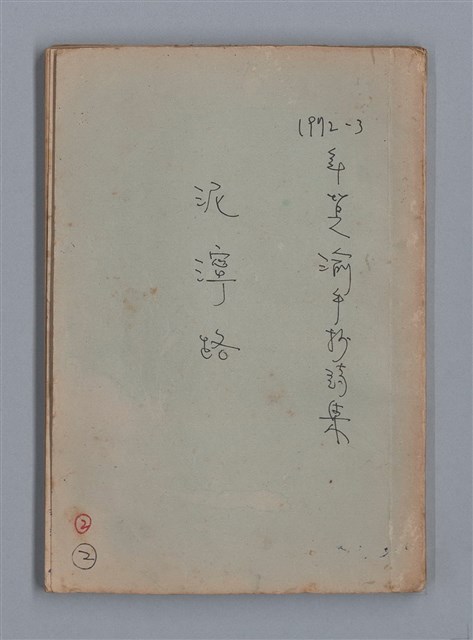 1972-3年莫渝手抄詩集
泥濘路
②
②